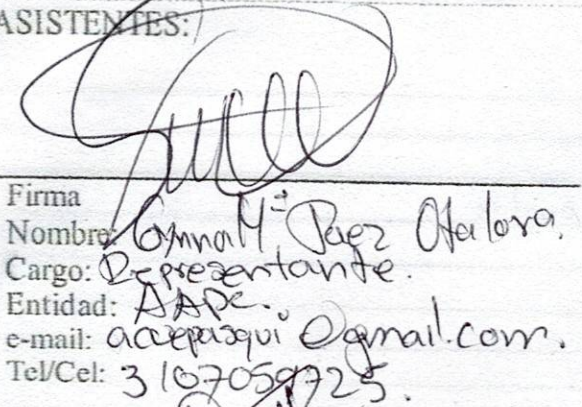 ASISTENTES:
Firma
Nombre: Gynna Mª Paez Otalora.
Cargo: Representante.
Entidad: AAPC.
e-mail: @gmail.com.
Tel/Cel: 3107059725.